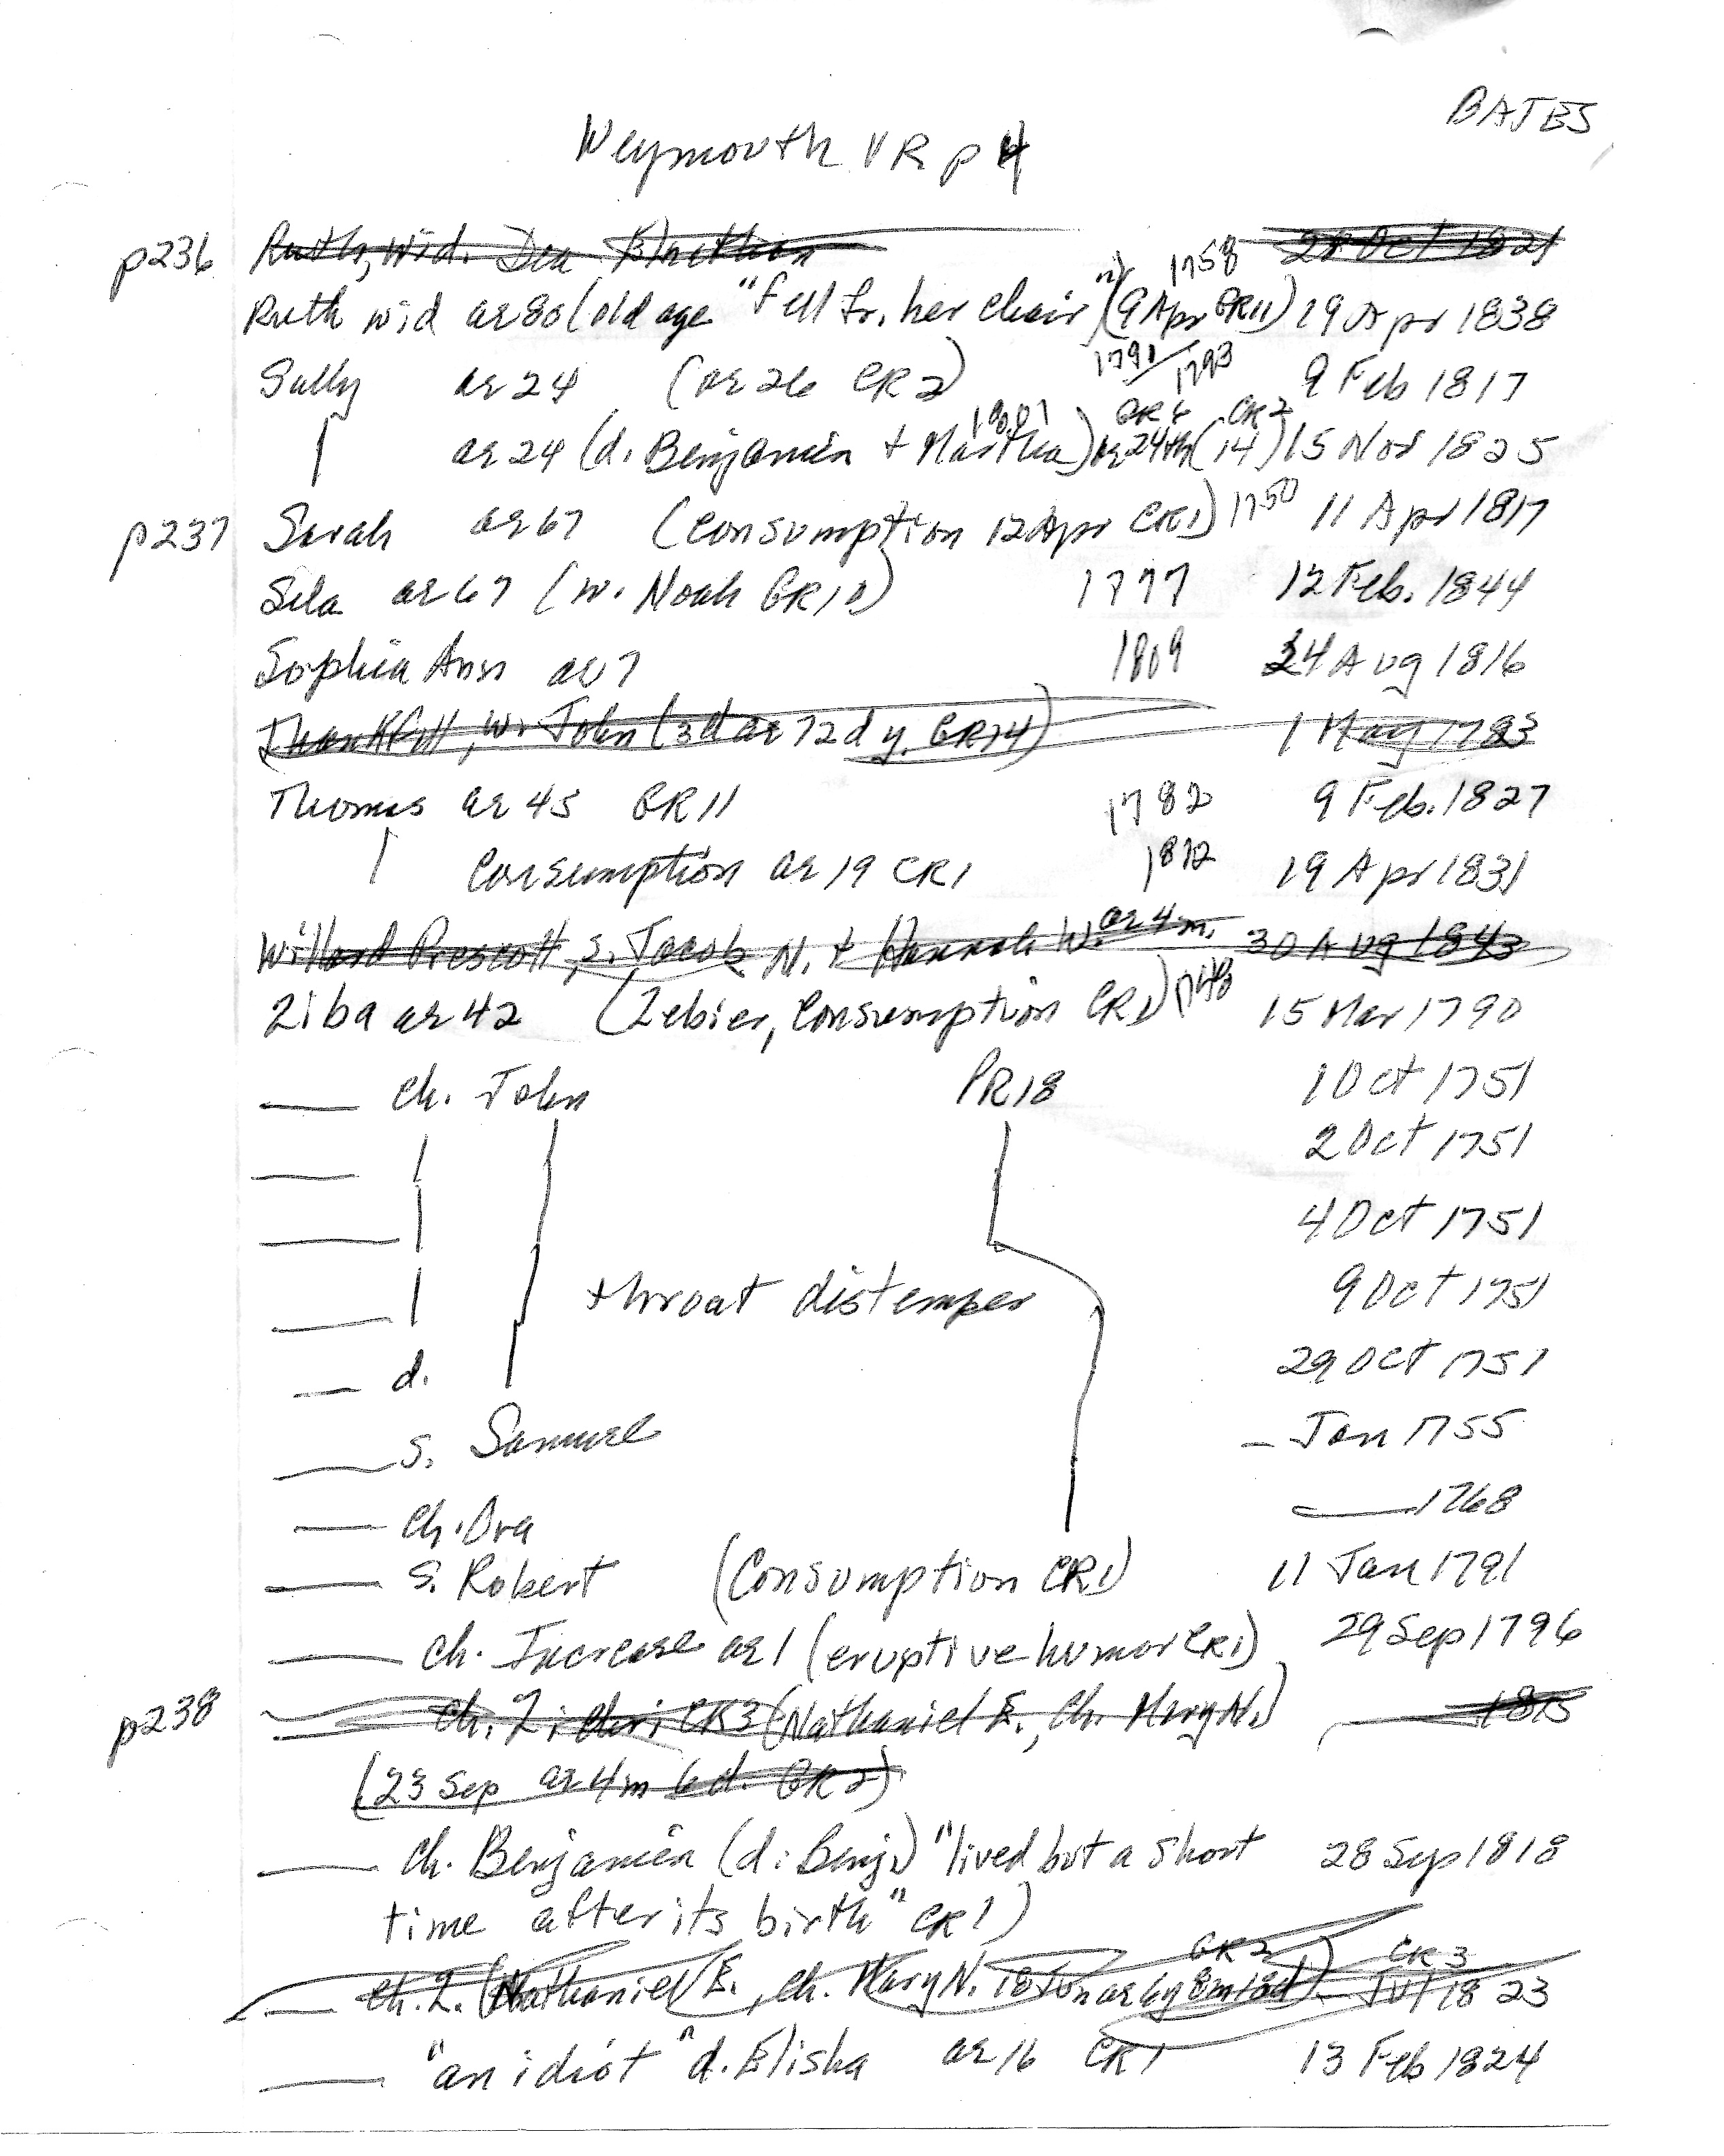 BATES
Weymouth VR p 4
p236 Ruth, wid. Dea 28 Oct 1821
Ruth wid ae 80 (old age "fell fr. her chair") (9 Apr GR11) 1758 19 Apr 1838
Sally ae 24 (ae 26 CR2) 1791/1793 9 Feb 1817
ae 24 (d. Benjamin + Martha) 1801 ae 24 GR4 (14) CR2 15 Nov 1825
p237 Sarah ae 67 (Consumption 12 Apr CR1) 1750 11 Apr 1817
Sila ae 67 (w. Noah GR10) 1777 12 Feb. 1844
Sophia Ann ae 7 1809 24 Aug 1816
Thankfull, w. John (3d ae 72d y. GR14) 1 May 1783
Thomas ae 45 GR11 1782 9 Feb. 1827
Consumption ae 19 CR1 1812 19 Apr 1831
Willard Prescott, s. Jacob N. + Hannah W. ae 4 m. 30 Aug 1843
Ziba ae 42 (Zebier, Consumption CR1) 1748 15 Mar 1790
— ch. John PR18 1 Oct 1751
— 2 Oct 1751
— 4 Oct 1751
— throat distemper 9 Oct 1751
— d. 29 Oct 1751
— s. Samuel — Jan 1755
— ch. Ora — 1768
— s. Robert (Consumption CR1) 11 Jan 1791
— ch. Increase ae 1 (eruptive humor CR1) 29 Sep 1796
p238 — ch. Z. CR3 (Nathaniel E., ch. Mary N.) — 1815
(23 Sep ae 4 m 6 d. GR2)
— ch. Benjamin (d. Benj.) "lived but a short 28 Sep 1818
time after its birth" CR1)
— ch. Z. (Nathaniel E., ch. Mary N. 18 Jan ae 6y 8m 18d GR2) — Jul 1823 CR3
— "an idiot" d. Elisha ae 16 CR1 13 Feb 1824